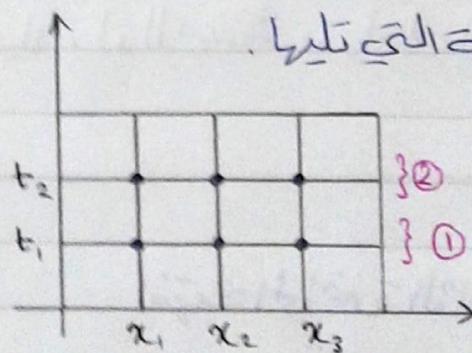 التي تليها.
t₂ } ②
t₁ } ①
x₁ x₂ x₃